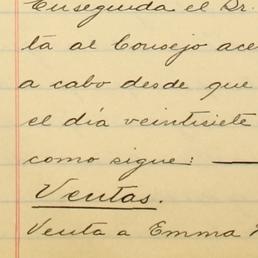 Enseguida el Dr.
ta al Consejo ace
a cabo desde que
el día veintisiete
como sigue:
Ventas.
Venta a Emma